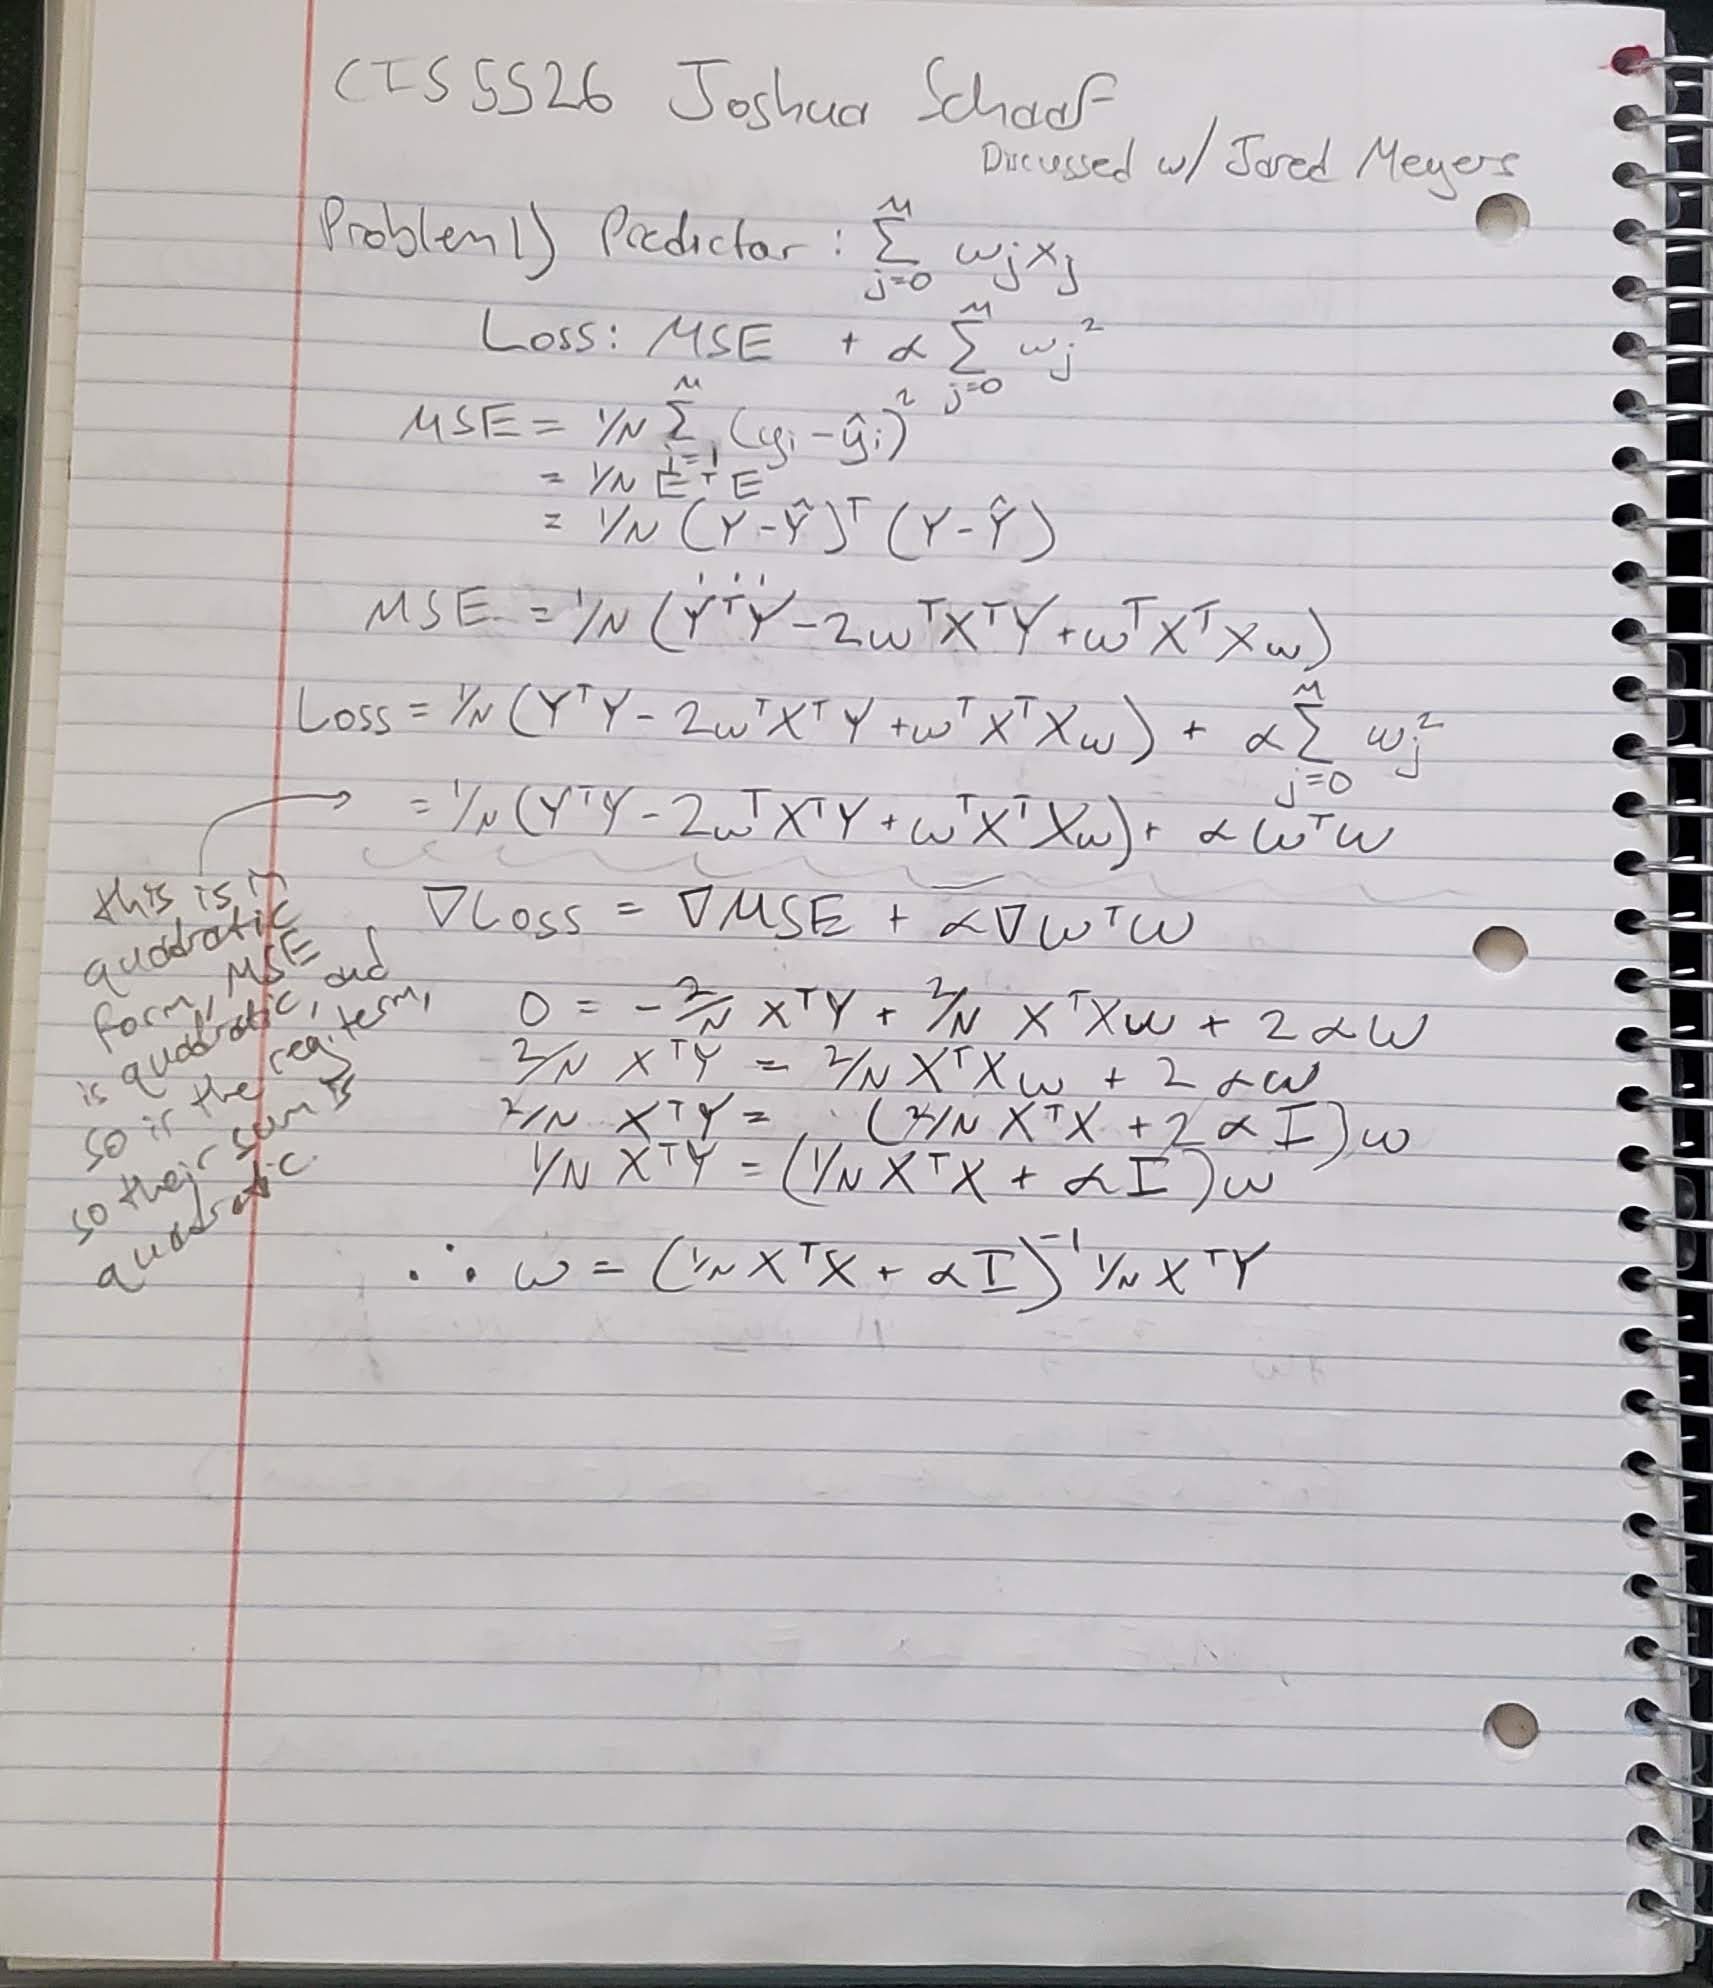 CIS 5526 Joshua Schaaf
Discussed w/ Jared Meyers
Problem 1) Predictor: Σ_{j=0}^{M} w_j x_j
Loss: MSE + α Σ_{j=0}^{M} w_j²
MSE = 1/N Σ_{i=1}^{N} (y_i - ŷ_i)²
= 1/N EᵀE
= 1/N (Y-Ŷ)ᵀ (Y-Ŷ)
MSE = 1/N (YᵀY - 2wᵀXᵀY + wᵀXᵀXw)
Loss = 1/N (YᵀY - 2wᵀXᵀY + wᵀXᵀXw) + α Σ_{j=0}^{M} w_j²
= 1/N (YᵀY - 2wᵀXᵀY + wᵀXᵀXw) + αwᵀw
this is in
quadratic
form, MSE
is quadratic, and
so is the reg. term,
so their sum is
quadratic.
∇Loss = ∇MSE + α∇wᵀw
0 = -2/N XᵀY + 2/N XᵀXw + 2αw
2/N XᵀY = 2/N XᵀXw + 2αw
2/N XᵀY = (2/N XᵀX + 2αI)w
1/N XᵀY = (1/N XᵀX + αI)w
∴ w = (1/N XᵀX + αI)⁻¹ 1/N XᵀY